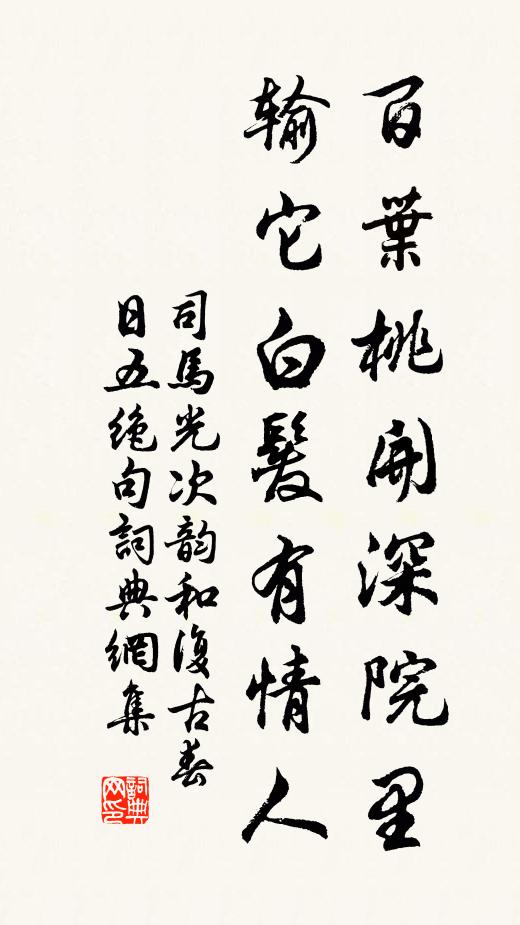 百葉桃開深院里
輸它白髮有情人
司馬光次韵和復古春
日五絶句詞典網集
詞典
网印